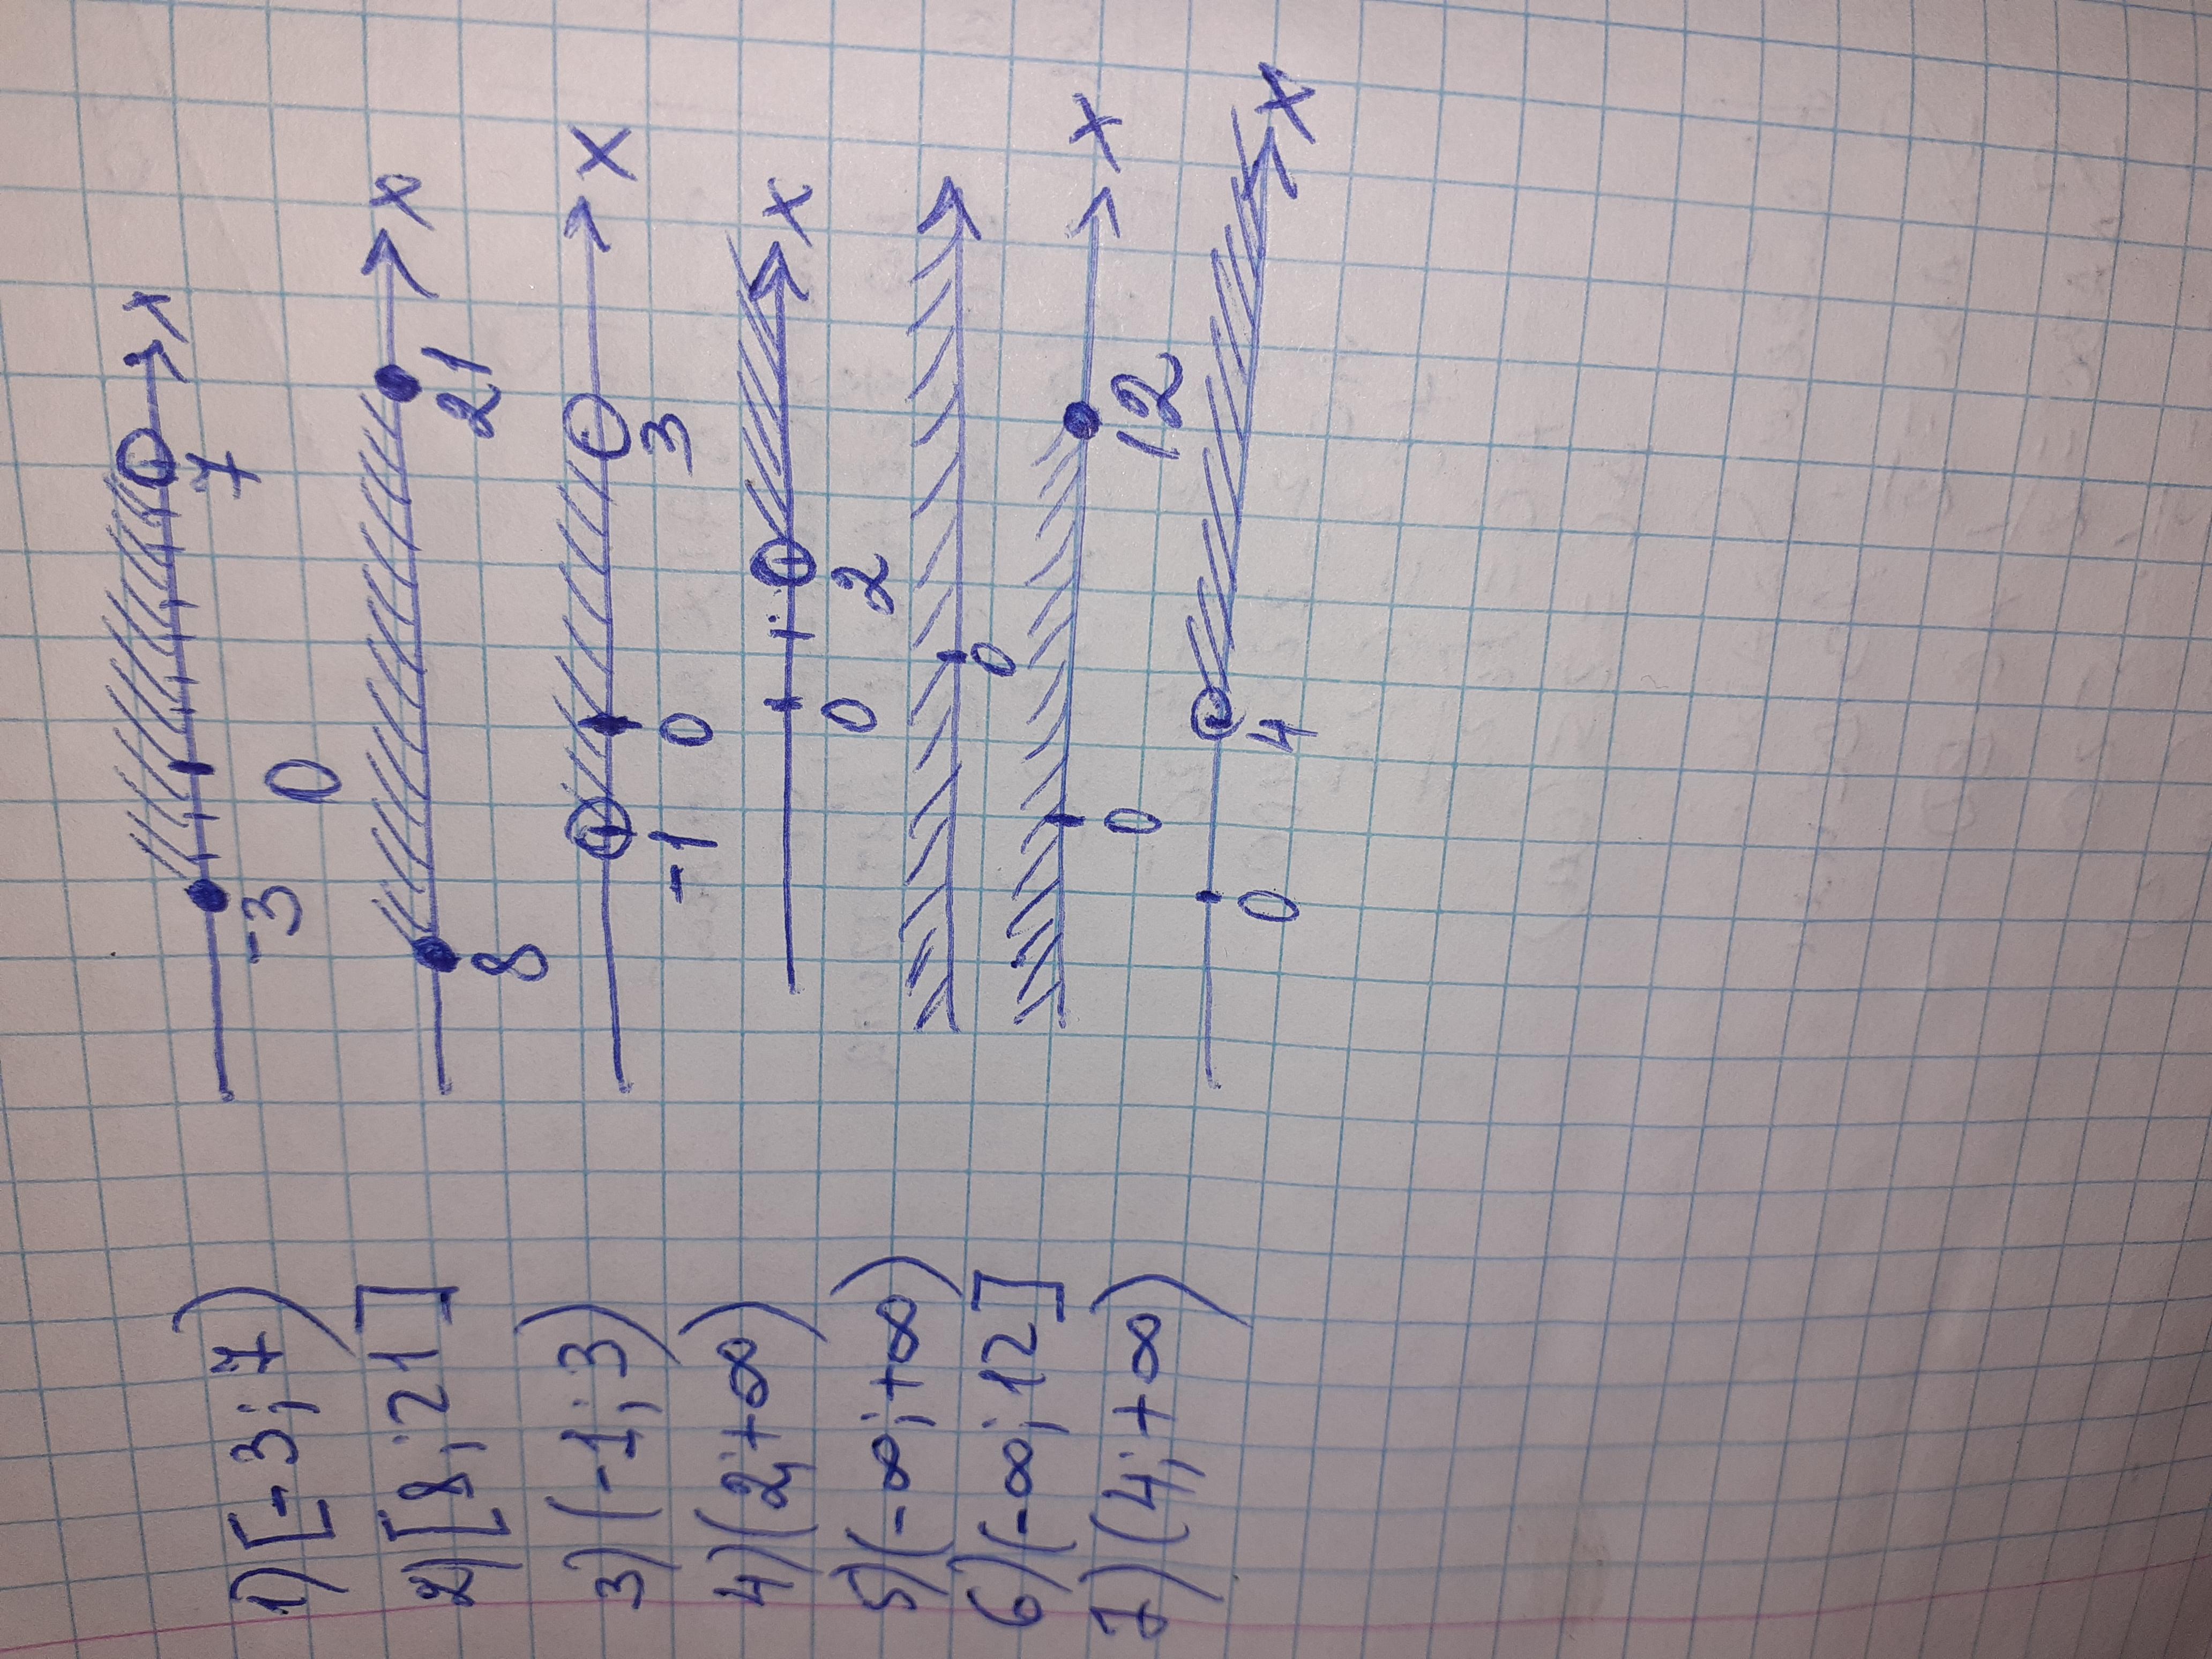 1) [-3; 7) -3 0 7 x
2) [8; 21] 8 21 x
3) (-1; 3) -1 0 3 x
4) (2; +∞) 0 2 x
5) (-∞; +∞) 0
6) (-∞; 12] 0 12 x
7) (4; +∞) 0 4 x